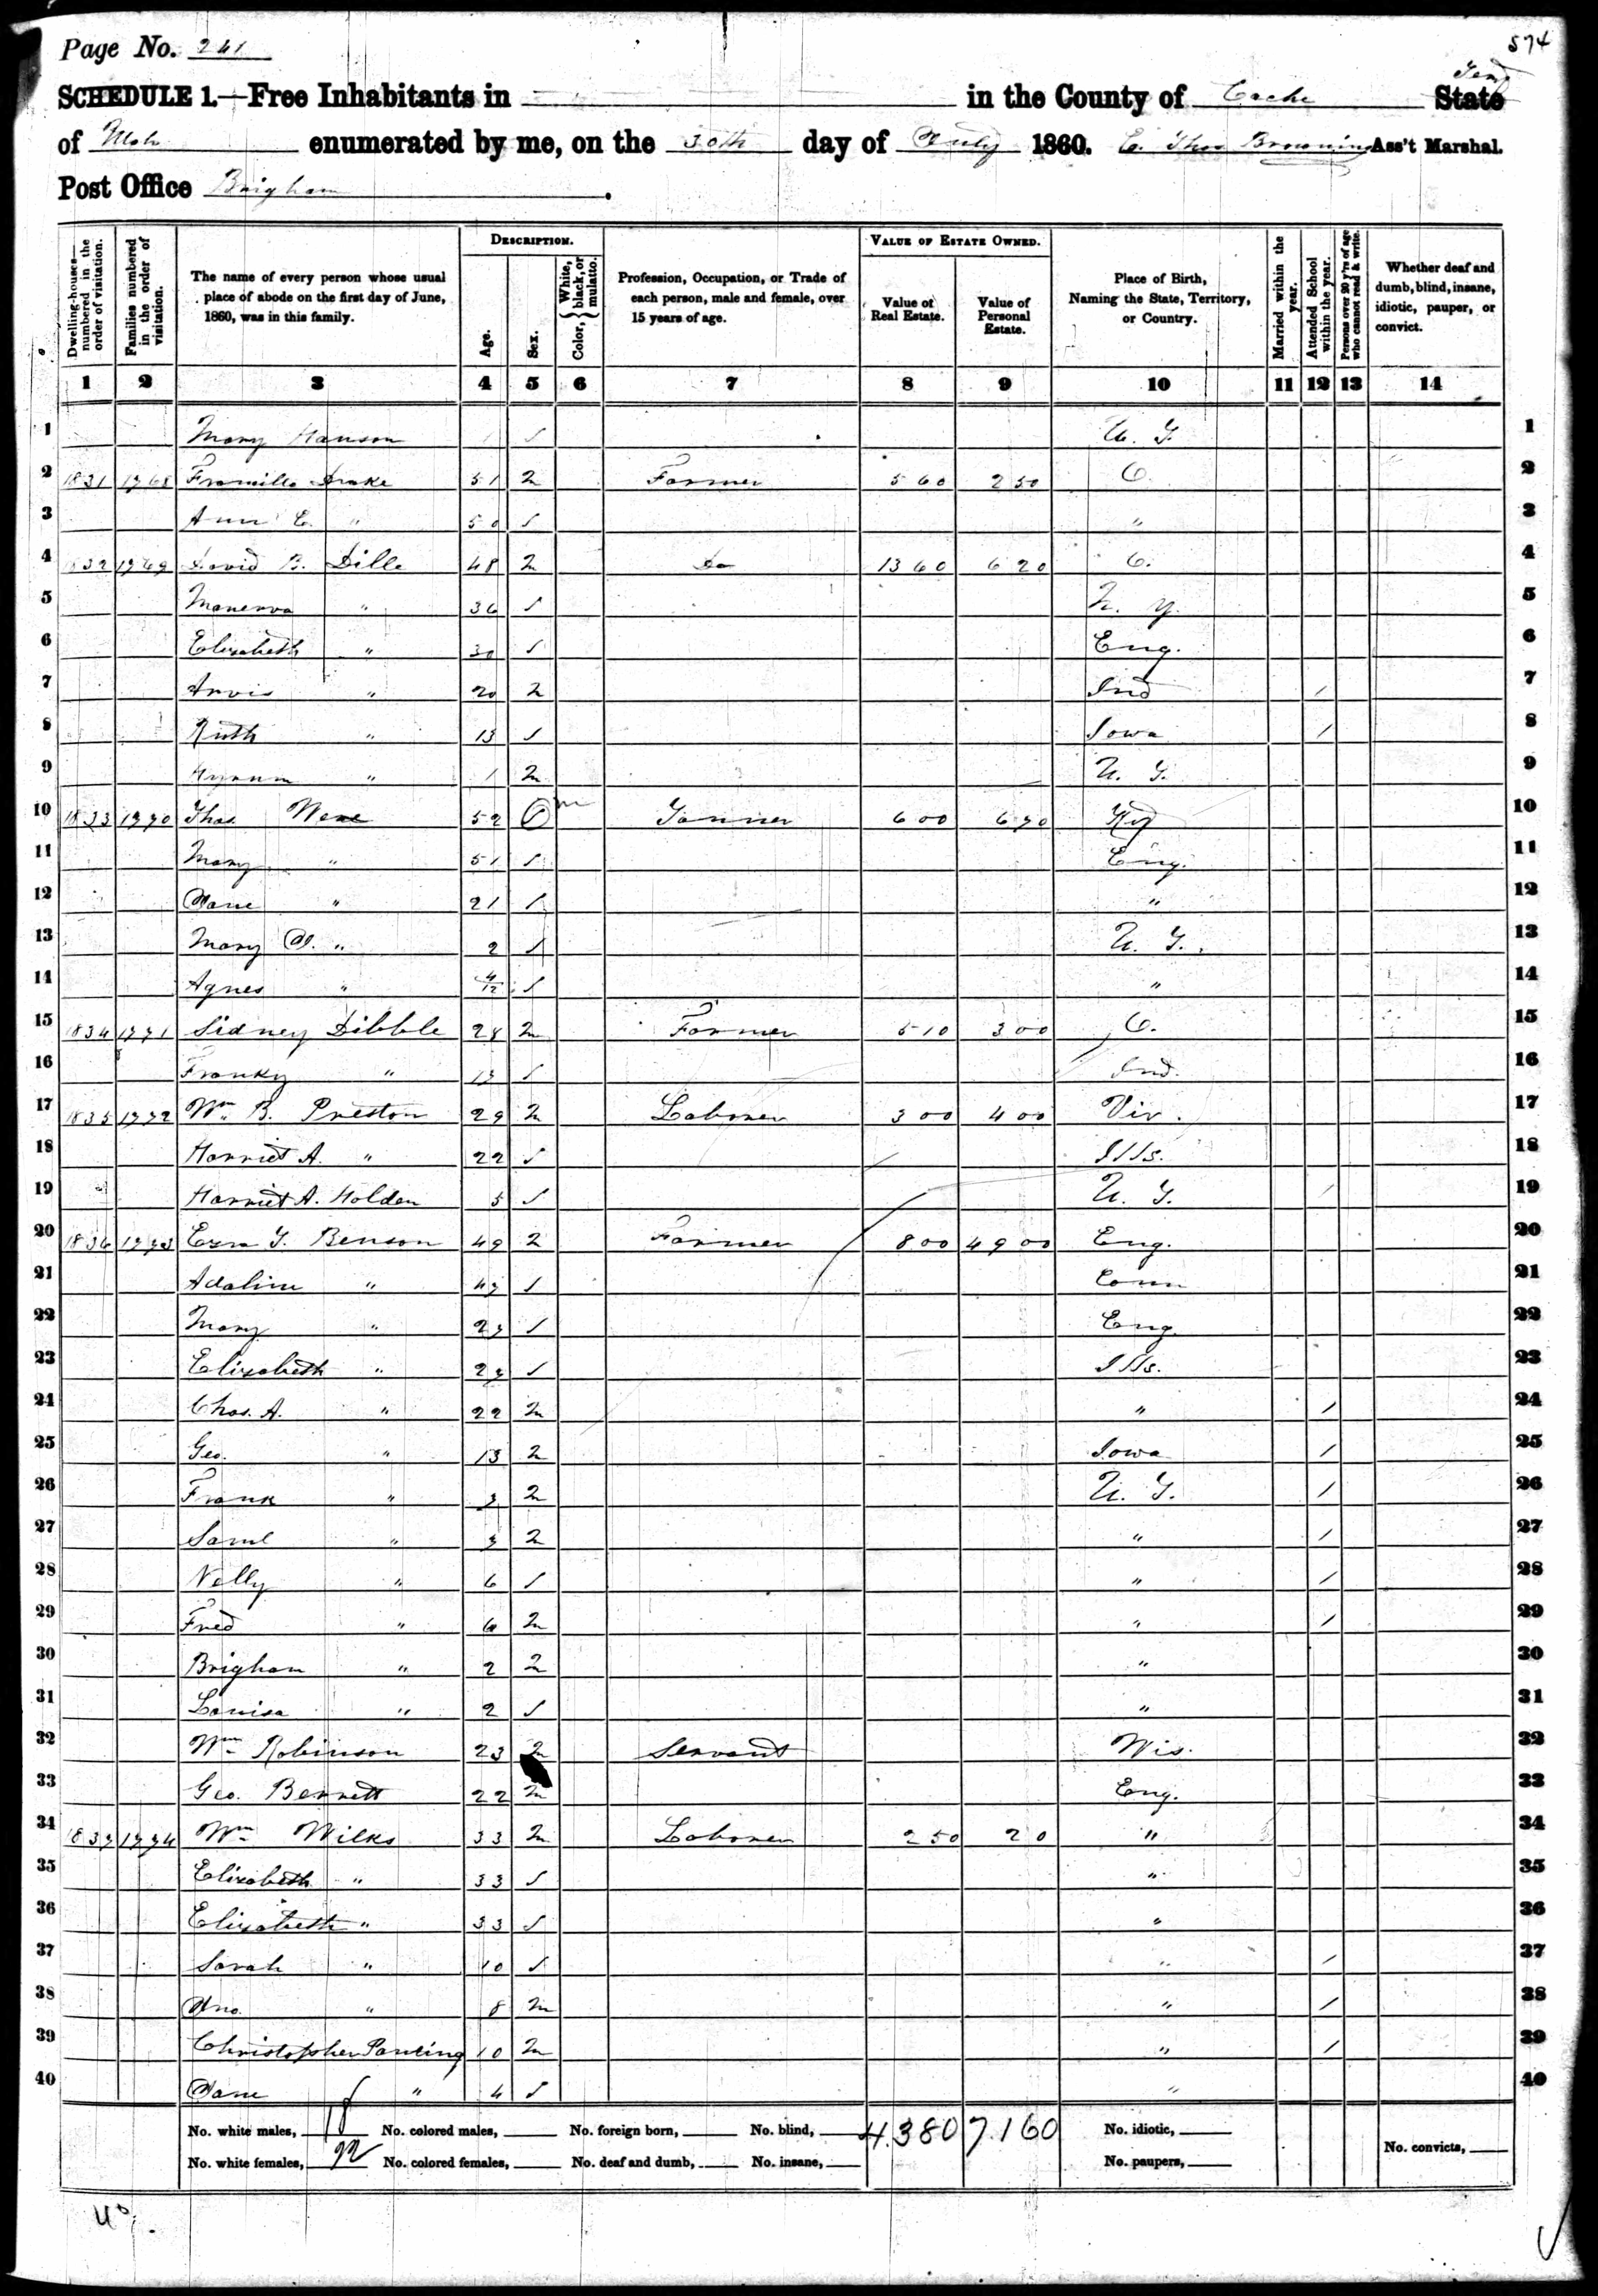 Page No. 241
574
SCHEDULE 1.—Free Inhabitants in in the County of Cache State
of Utah enumerated by me, on the 30th day of July 1860. Thos Browning Ass't Marshal.
Post Office Brigham.
Dwelling-houses—numbered in the order of visitation.
Families numbered in the order of visitation.
The name of every person whose usual place of abode on the first day of June, 1860, was in this family.
DESCRIPTION.
Age.
Sex.
Color, White, black, or mulatto.
Profession, Occupation, or Trade of each person, male and female, over 15 years of age.
VALUE OF ESTATE OWNED.
Value of Real Estate.
Value of Personal Estate.
Place of Birth, Naming the State, Territory, or Country.
Married within the year.
Attended School within the year.
Persons over 20 y'rs of age who cannot read & write.
Whether deaf and dumb, blind, insane, idiotic, pauper, or convict.
1 2 3 4 5 6 7 8 9 10 11 12 13 14
1 Mary Hanson f U. T. 1
2 1831 1768 Drake 51 m Farmer 560 250 O. 2
3 Ann E. " 50 f " 3
4 1832 1769 David B. Dille 48 m Do 1360 620 O. 4
5 Manerva " 36 f N. Y. 5
6 Elizabeth " 30 f Eng. 6
7 Arvis " 20 m Ind / 7
8 Ruth " 13 f Iowa / 8
9 Hyrum " 1 m U. T. 9
10 1833 1770 Thos. 52 m 600 670 10
11 Mary " 51 f Eng. 11
12 Jane " 21 f " 12
13 Mary J. " 2 f U. T. 13
14 Agnes " 4/12 f " 14
15 1834 1771 Sidney Dibble 28 m Farmer 510 300 O. 15
16 Franky " 17 f Ind. 16
17 1835 1772 Wm. B. Preston 29 m Laborer 300 400 Vir. 17
18 Harriet A. " 22 f Ills. 18
19 Harriet A. Holden 5 f U. T. / 19
20 1836 1773 Ezra T. Benson 49 m Farmer 800 4900 Eng. 20
21 Adaline " 47 f Conn 21
22 Mary " 27 f Eng. 22
23 Elizabeth " 27 f Ills. 23
24 Chas. A. " 22 m " / 24
25 Geo. " 13 m Iowa / 25
26 Frank " 7 m U. T. / 26
27 Saml " 7 m " / 27
28 Nelly " 6 f " / 28
29 Fred " 6 m " / 29
30 Brigham " 2 m " 30
31 Louisa " 2 f " 31
32 Wm. Robinson 23 m Servant Wis. 32
33 Geo. Bennett 22 m Eng. 33
34 1837 1774 Wm. Wilks 33 m Laborer 250 20 " 34
35 Elizabeth " 33 f " 35
36 Elizabeth " 33 f " 36
37 Sarah " 10 f " / 37
38 Jno. " 8 m " / 38
39 Christopher Panting 10 m " / 39
40 Jane " 4 f " 40
No. white males, 18 No. colored males, No. foreign born, No. blind, 4.380 7.160 No. idiotic,
No. white females, 22 No. colored females, No. deaf and dumb, No. insane, No. paupers, No. convicts,